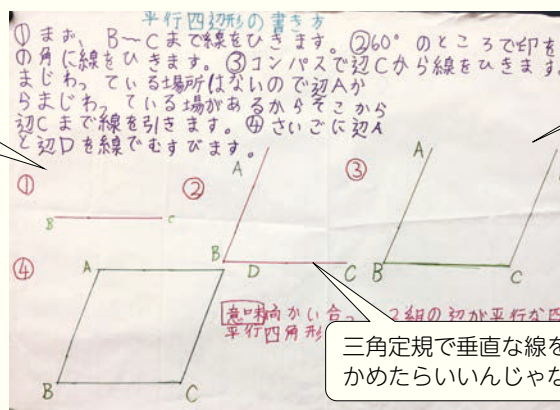 平行四辺形の書き方
① まず、B〜Cまで線をひきます。②60°のところで印を
の角に線をひきます。③コンパスで辺Cから線をひきます
まじわっている場所はないので辺Aか
らまじわっている場があるからそこから
辺Cまで線を引きます。④さいごに辺A
と辺Dを線でむすびます。
①
B C
②
A
B D C
③
A
B C
④
A
B C
意味 向かい合っ 2組の辺が平行な四
平行四角形
三角定規で垂直な線を
かめたらいいんじゃな